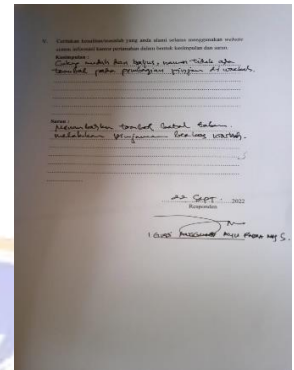 6. Ceritakan kesulitan/masalah yang anda alami selama menggunakan website
sistem informasi kantor pertanahan dalam bentuk kesimpulan dan saran.
Kesimpulan :
Cukup mudah dan bagus, namun tidak ada
tombol pada peminjaman di warkah.
Saran :
Menambahkan tombol batal dalam
melakukan peminjaman warkah.
22 Sept 2022
Responden
I GUSTI AYU